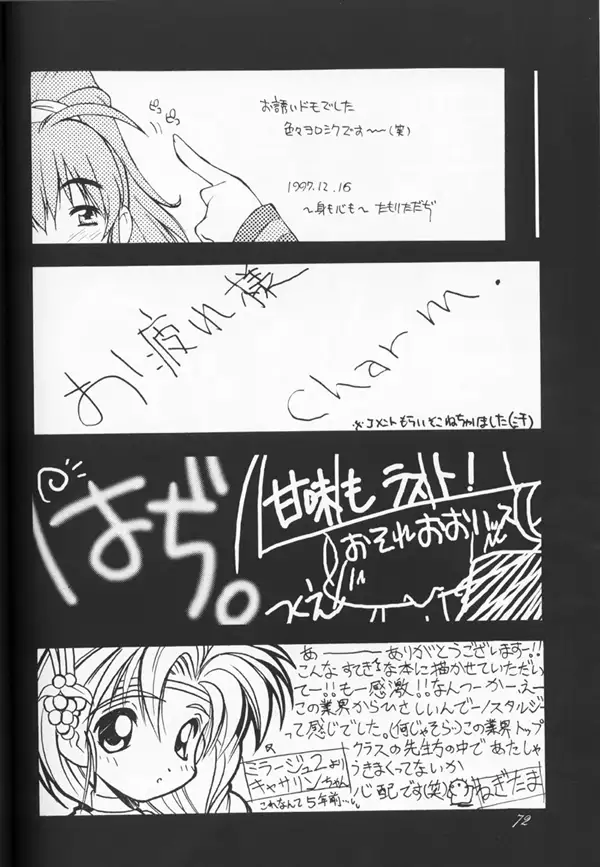 ピッ ピッ
お誘いドモでした
色々ヨロシクです〜(笑)
1997.12.16
〜身も心も〜 たもりただぢ
お疲れ様
Charm.
※コメントもらいそこねちゃいました(ニ千)
はぢ。
甘味も ラスト!
おそれおおいッス
つくえ
あ———ありがとうございますー!!
こんな すてきな本に描かせていただい
てー!!もー感激!!なんつーかーえー
この業界からひさしいんでーノスタルジ
って感じでした。(何じゃそら)この業界トップ
クラスの先生方の中であたしゃ
うきまくってないか
心配です(笑) ねぎたま
ミラージュ2より
キャサリンちゃん
これなんて5年前…
72